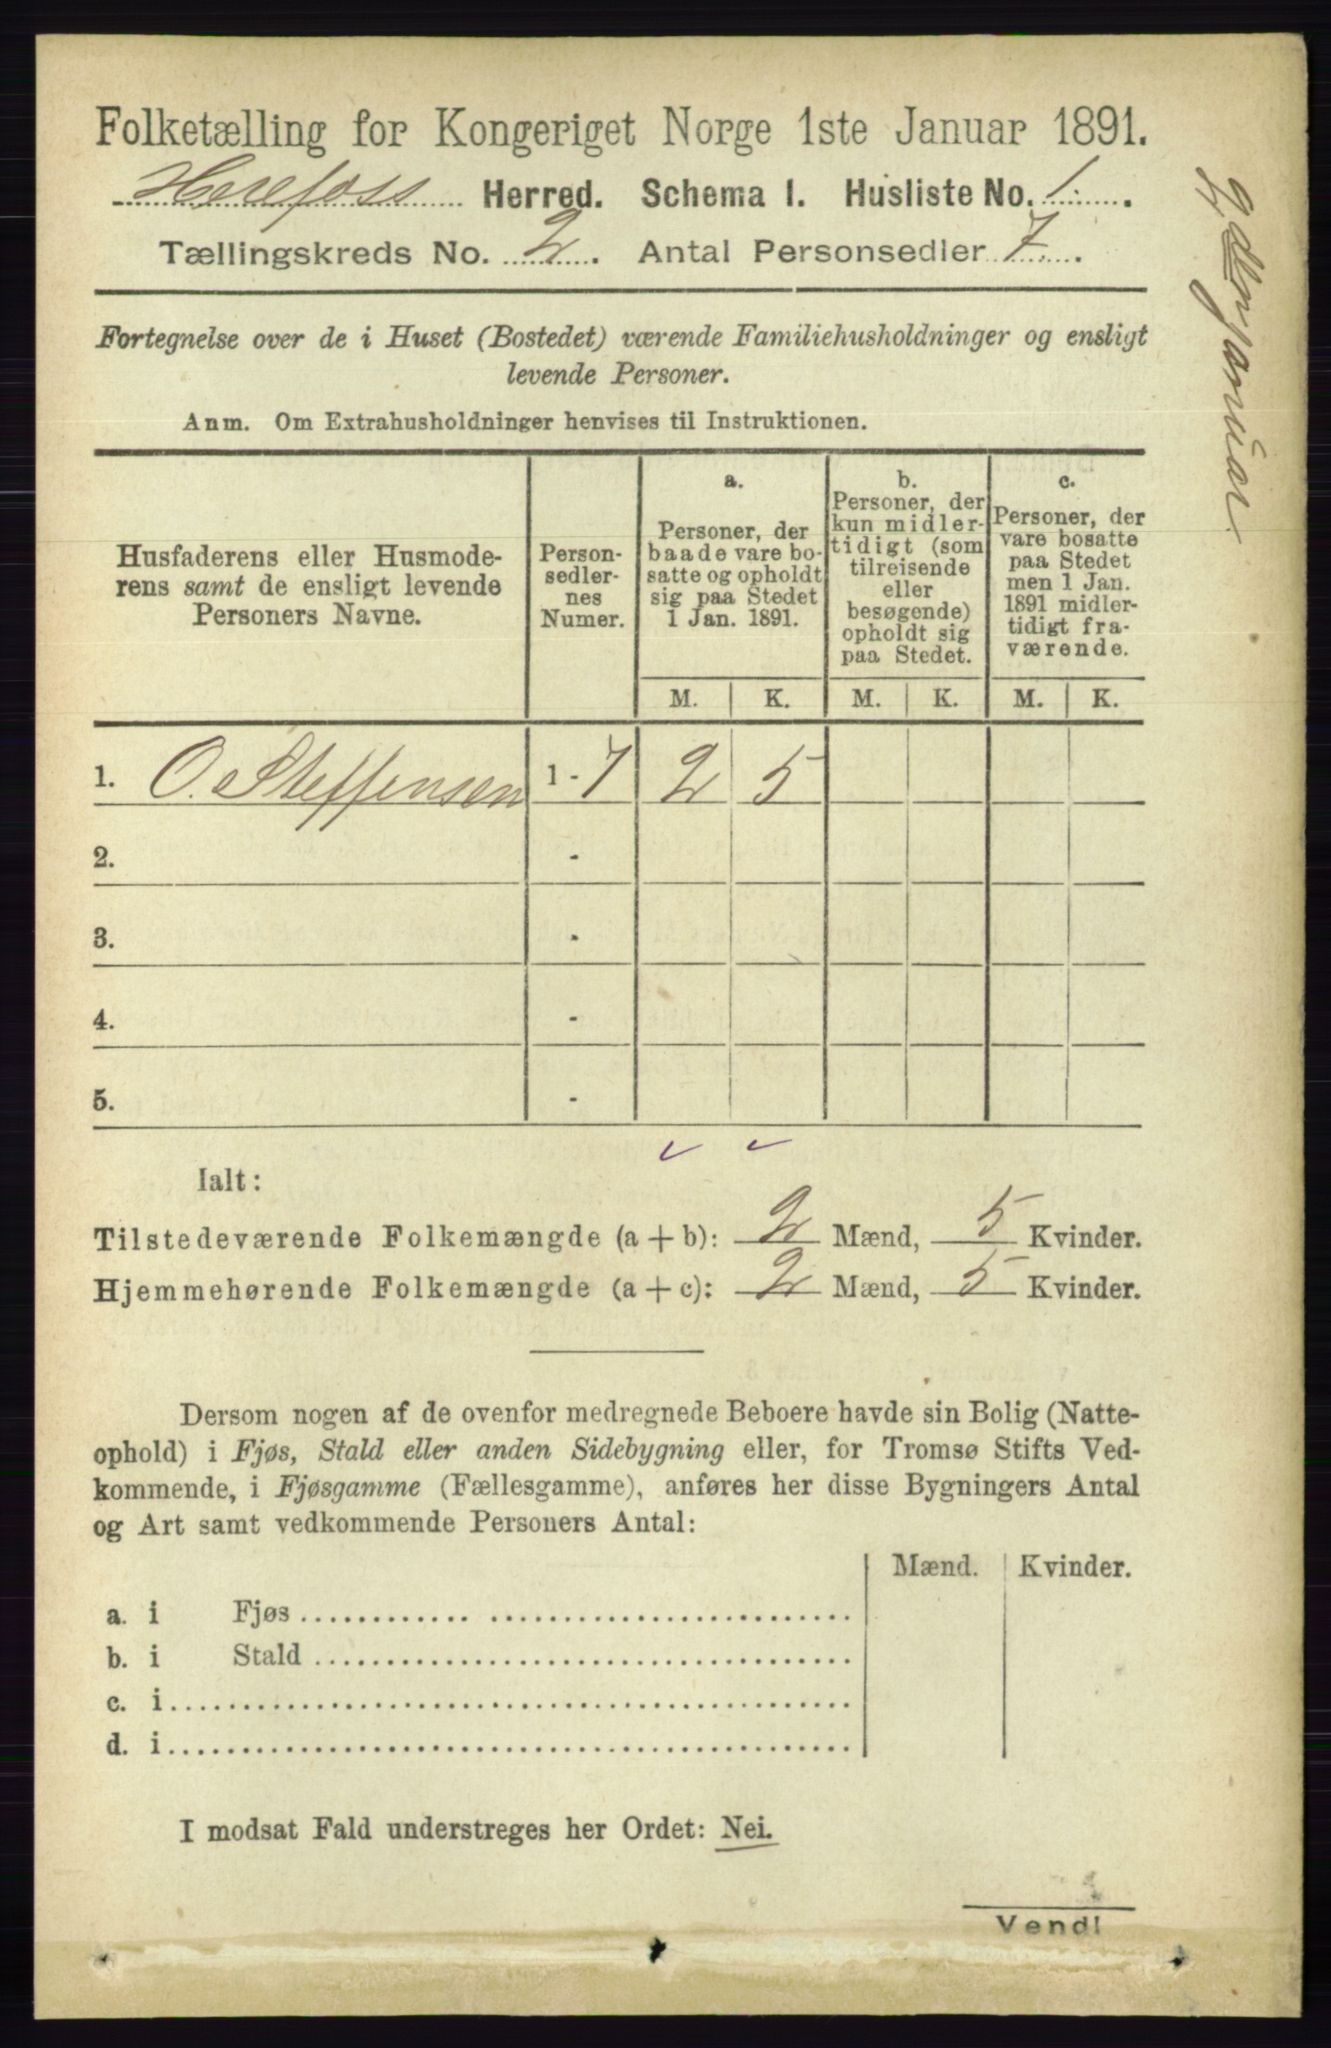 Folketælling for Kongeriget Norge 1ste Januar 1891.
Herefoss Herred. Schema I. Husliste No. 1.
Tællingskreds No. 2. Antal Personsedler 7.
Januar.
Fortegnelse over de i Huset (Bostedet) værende Familiehusholdninger og ensligt
levende Personer.
Anm. Om Extrahusholdninger henvises til Instruktionen.
Husfaderens eller Husmode-
rens samt de ensligt levende
Personers Navne.
Person-
sedler-
nes
Numer.
a.
Personer, der
baade vare bo-
satte og opholdt
sig paa Stedet
1 Jan. 1891.
b.
Personer, der
kun midler-
tidigt (som
tilreisende
eller
besøgende)
opholdt sig
paa Stedet.
c.
Personer, der
vare bosatte
paa Stedet
men 1 Jan.
1891 midler-
tidigt fra-
værende.
M. K. M. K. M. K.
1. O. Steffensen 1 - 7 2 5
2. -
3. -
4. -
5. -
Ialt:
Tilstedeværende Folkemængde (a + b): 2 Mænd, 5 Kvinder.
Hjemmehørende Folkemængde (a + c): 2 Mænd, 5 Kvinder.
Dersom nogen af de ovenfor medregnede Beboere havde sin Bolig (Natte-
ophold) i Fjøs, Stald eller anden Sidebygning eller, for Tromsø Stifts Ved-
kommende, i Fjøsgamme (Fællesgamme), anføres her disse Bygningers Antal
og Art samt vedkommende Personers Antal:
Mænd. Kvinder.
a. i Fjøs
b. i Stald
c. i
d. i
I modsat Fald understreges her Ordet: Nei.
Vend!